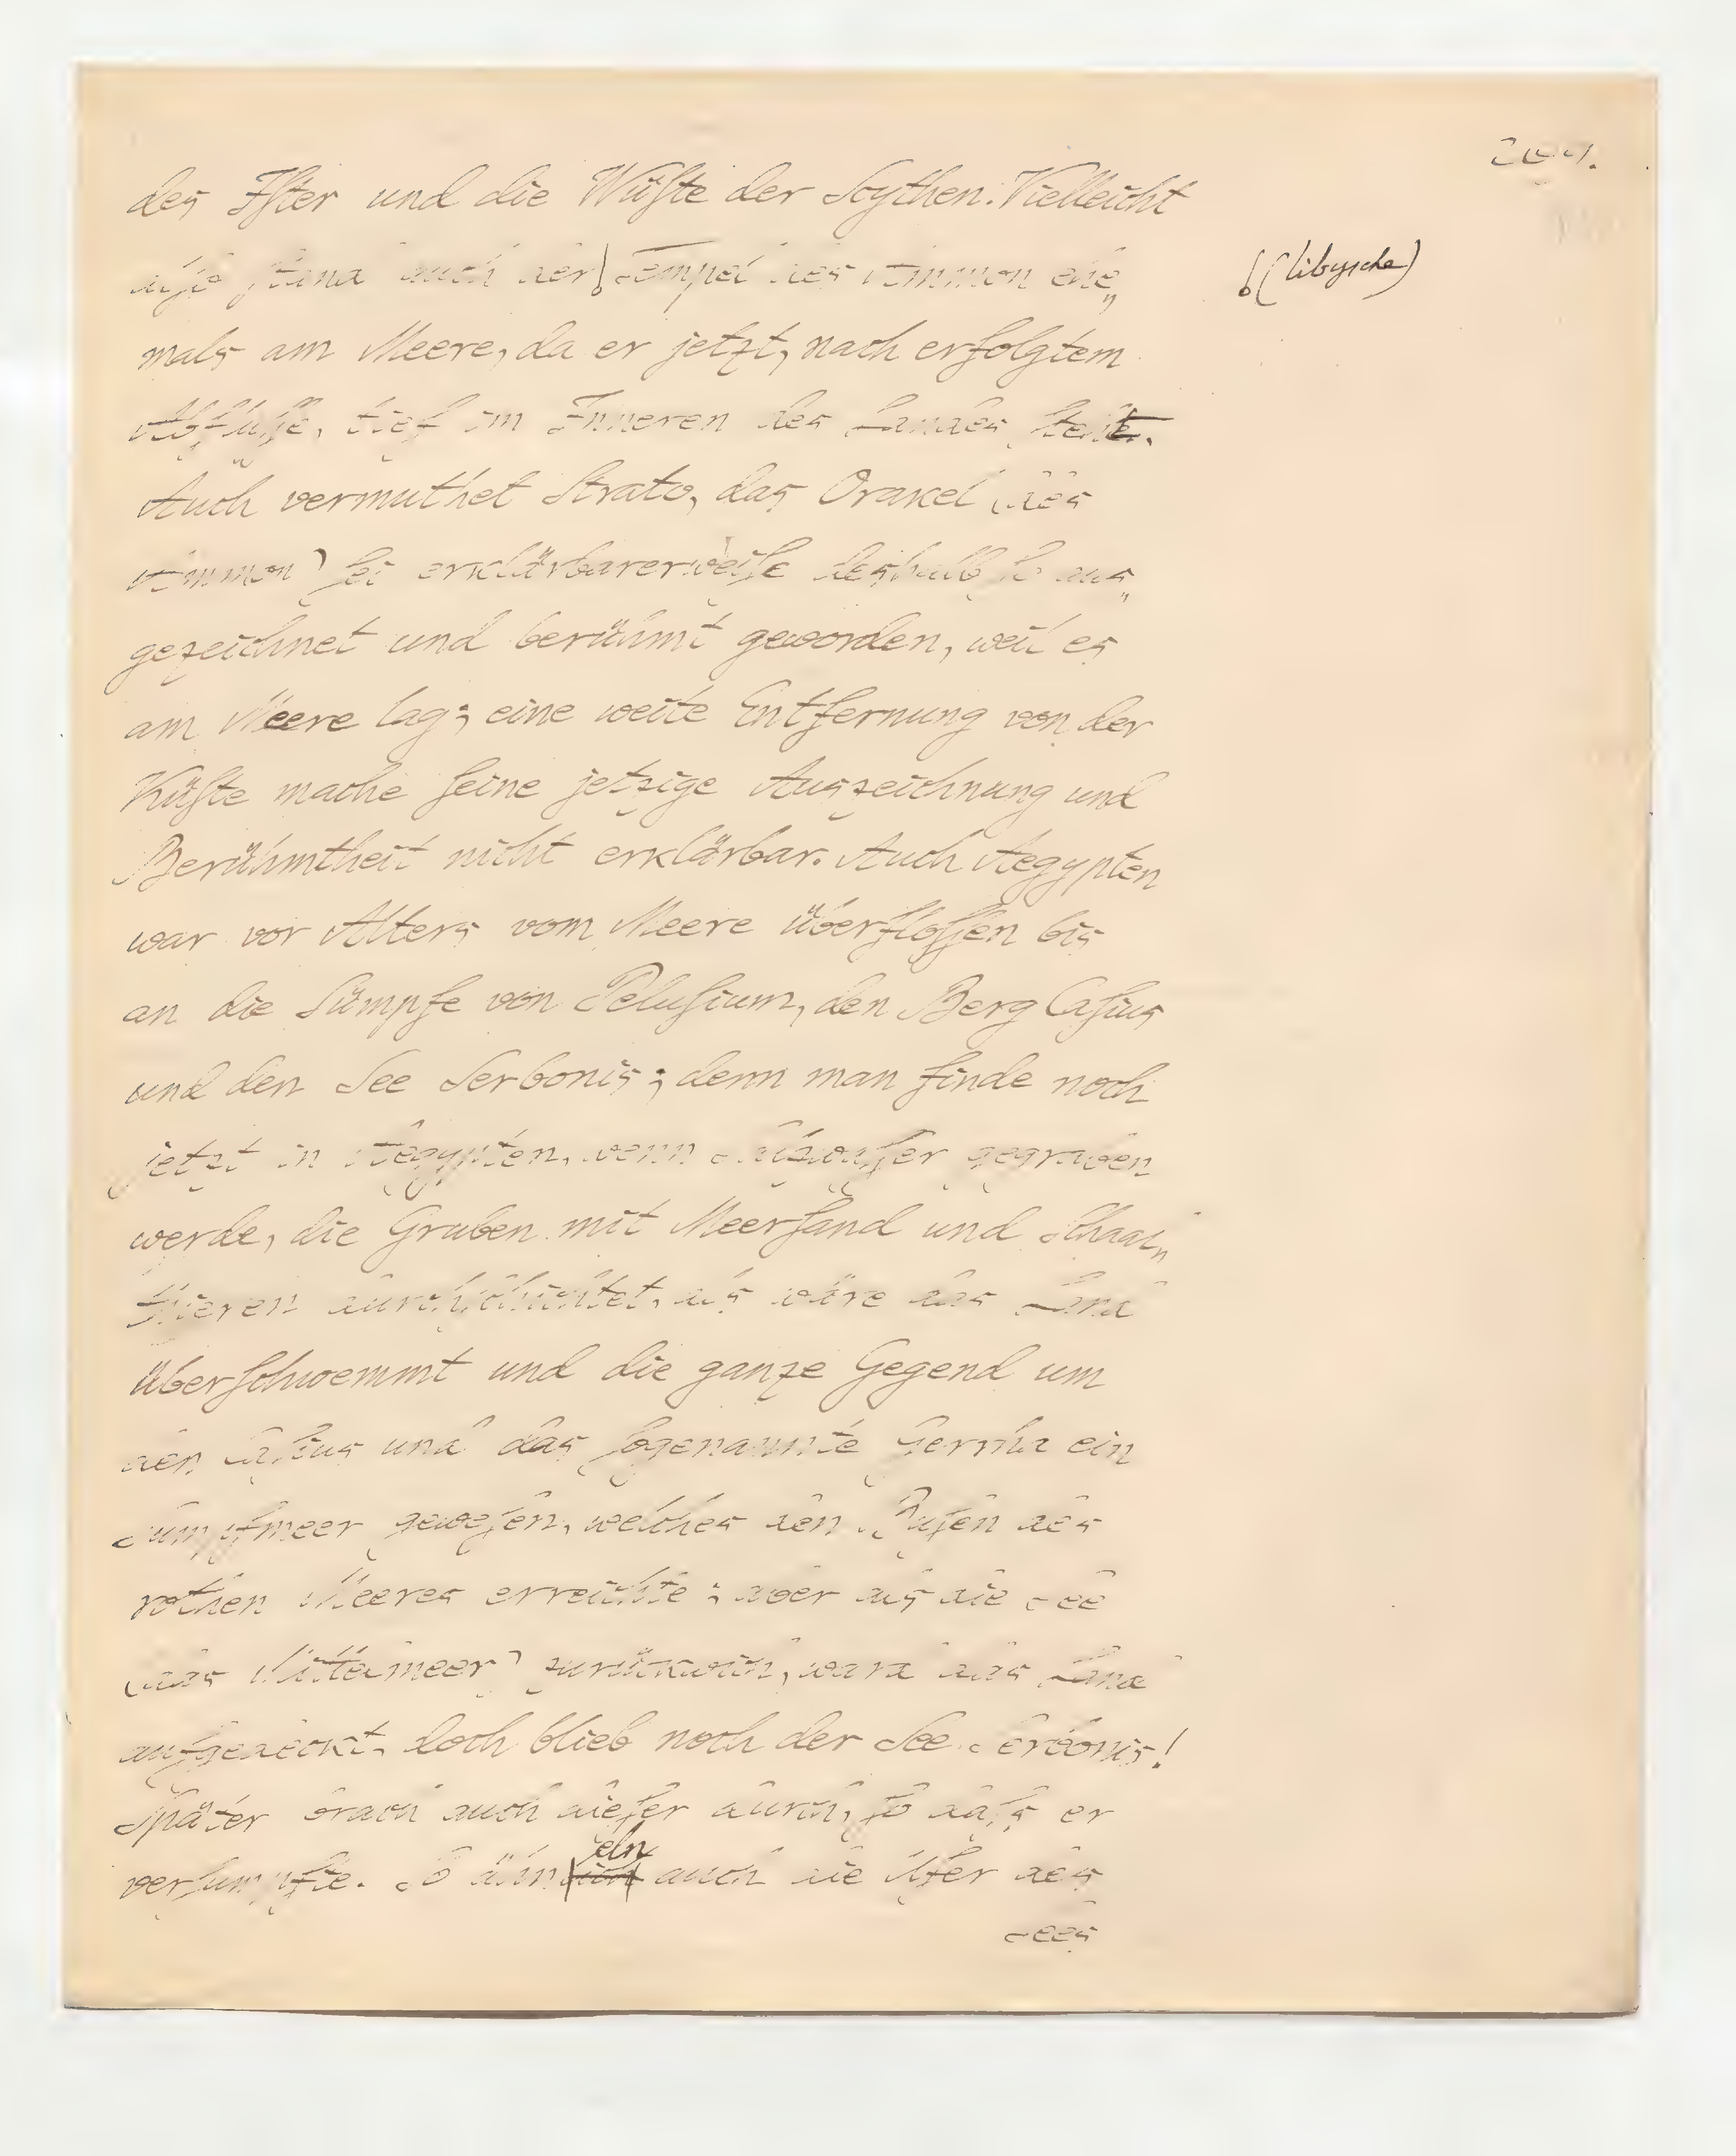 des Ister und die Wüste der Scythen. Vielleicht
also stand auch der Tempel des Ammon ehe„
(libysche)
mals am Meere, da er jetzt, nach erfolgtem
Abflusse, tief im Inneren des Landes
Auch vermuthet Strato, das Orakel (des
Ammon) sei erklärbarerweise deshalb so aus„
gezeichnet und berühmt geworden, weil es
am Meere lag; eine weite Entfernung von der
Küste mache seine jetzige Auszeichnung und
Berühmtheit nicht erklärbar. Auch Aegypten
war vor Alters vom Meere überflossen bis
an die Sümpfe von Pelusium, den Berg Casius
und den See Serbonis; denn man finde noch
jetzt in Aegypten, wenn Salzwasser gegraben
werde, die Gruben mit Meersand und Schaal„
thieren durchschichtet, als wäre das Land
überschwemmt und die ganze Gegend um
den Casius und das sogenannte Gerrha ein
Sumpfmeer gewesen, welches den Busen des
rothen Meeres erreichte; aber als die See
(das Mittelmeer) zurückwich, ward das Land
aufgedeckt, doch blieb noch der See Serbonis!
Später brach auch dieser durch, so dass er
versumpfte. So ähneln auch die Ufer des
Sees